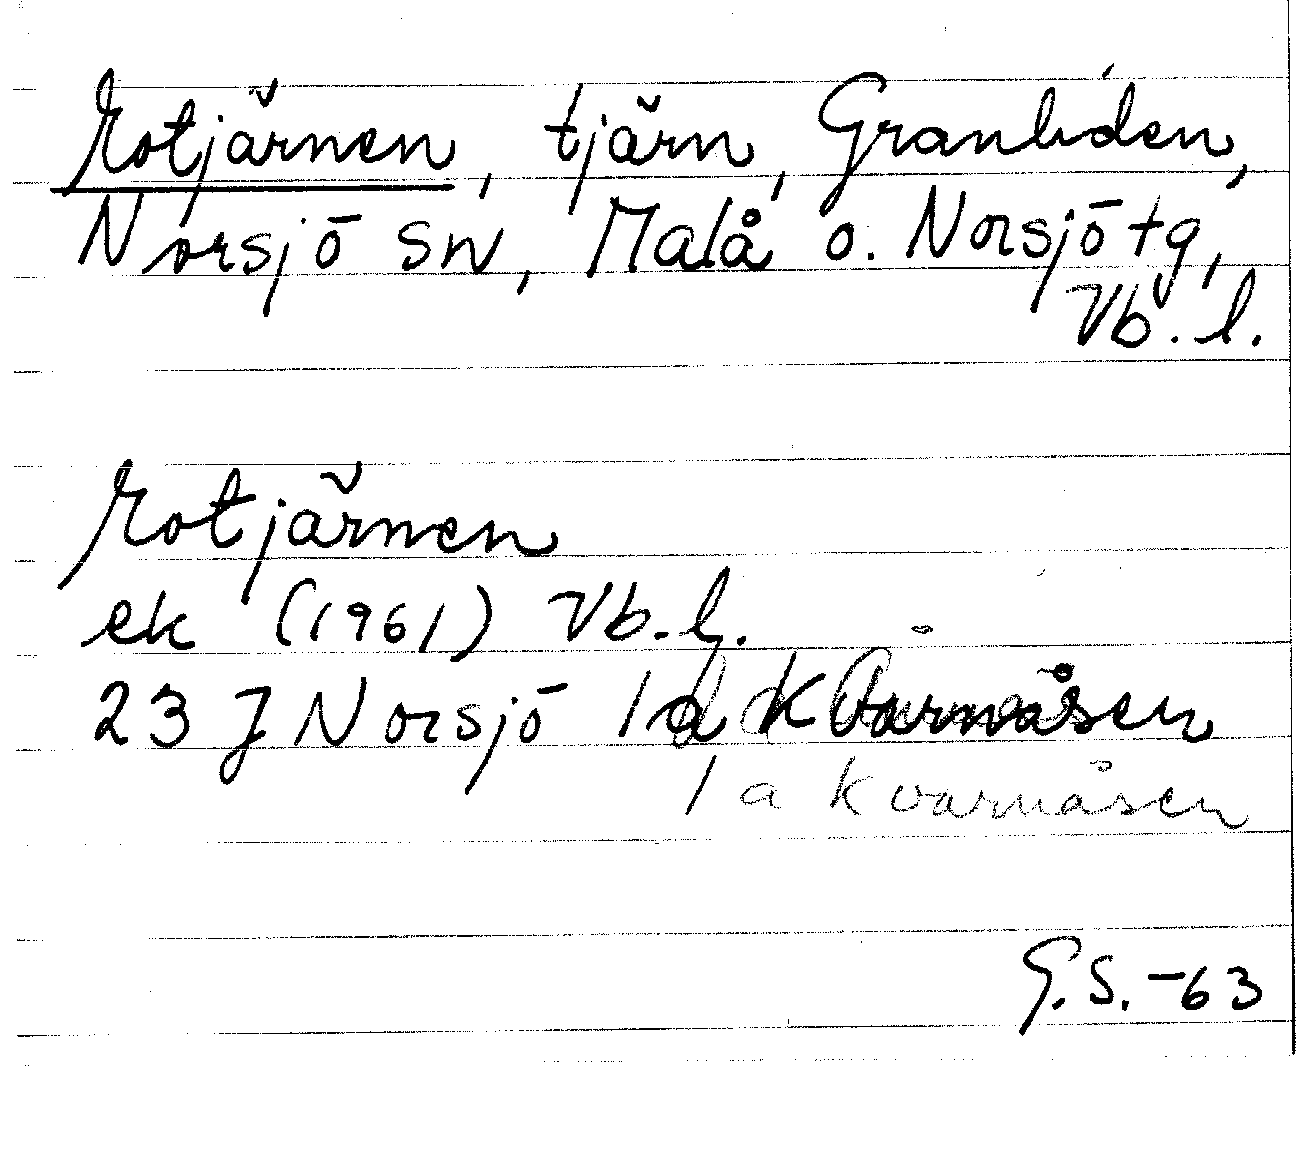 Rotjärnen, tjärn, Granliden,
Norsjö sn, Malå o. Norsjö tg,
Vb. l.
Rotjärnen
ek (1961) Vb. l.
23 J Norsjö 1 d Kvarnåsen
1 a Kvarnåsen
G.S. -63